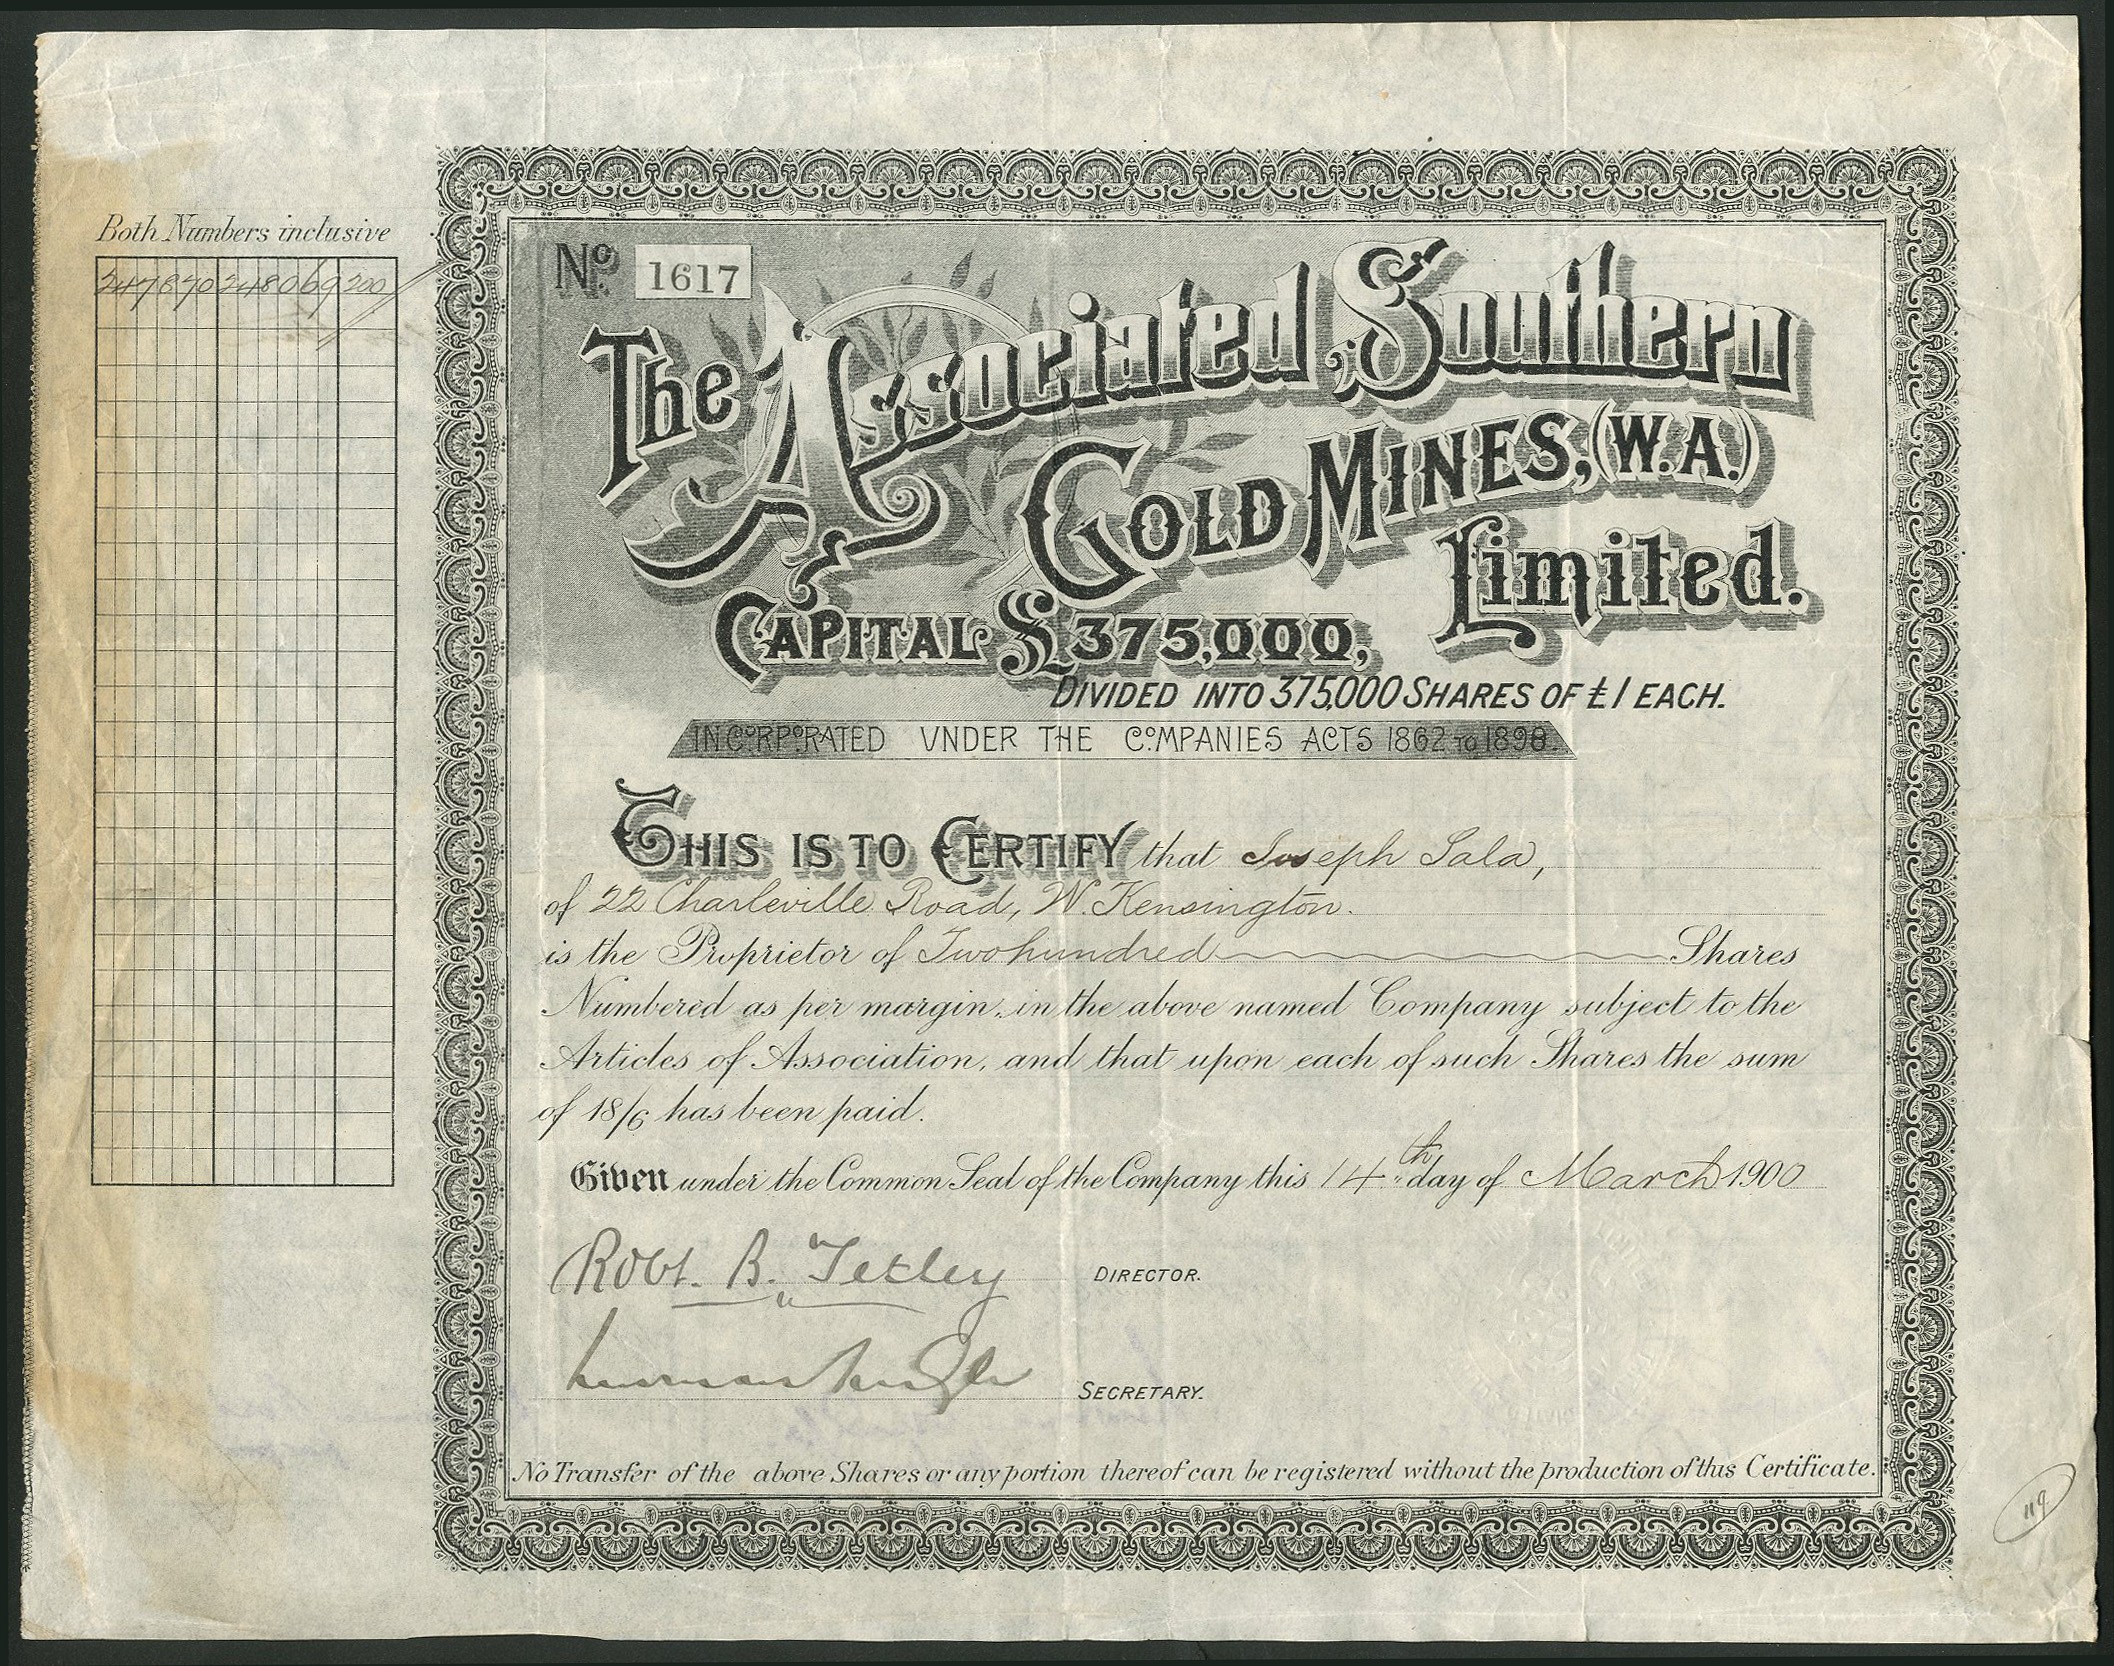 Both Numbers inclusive
247870 248069 200
No. 1617
The Associated Southern
Gold Mines, (W.A.)
Limited.
Capital £375,000,
Divided into 375,000 Shares of £1 each.
Incorporated under the Companies Acts 1862 to 1898.
This is to Certify that Joseph Sala,
of 22 Charleville Road, W. Kensington.
is the Proprietor of Two hundred Shares
Numbered as per margin, in the above named Company subject to the
Articles of Association, and that upon each of such Shares the sum
of 18/6 has been paid.
Given under the Common Seal of the Company this 14th day of March 1900
Robt. B. Tetley Director.
Secretary.
No Transfer of the above Shares or any portion thereof can be registered without the production of this Certificate.